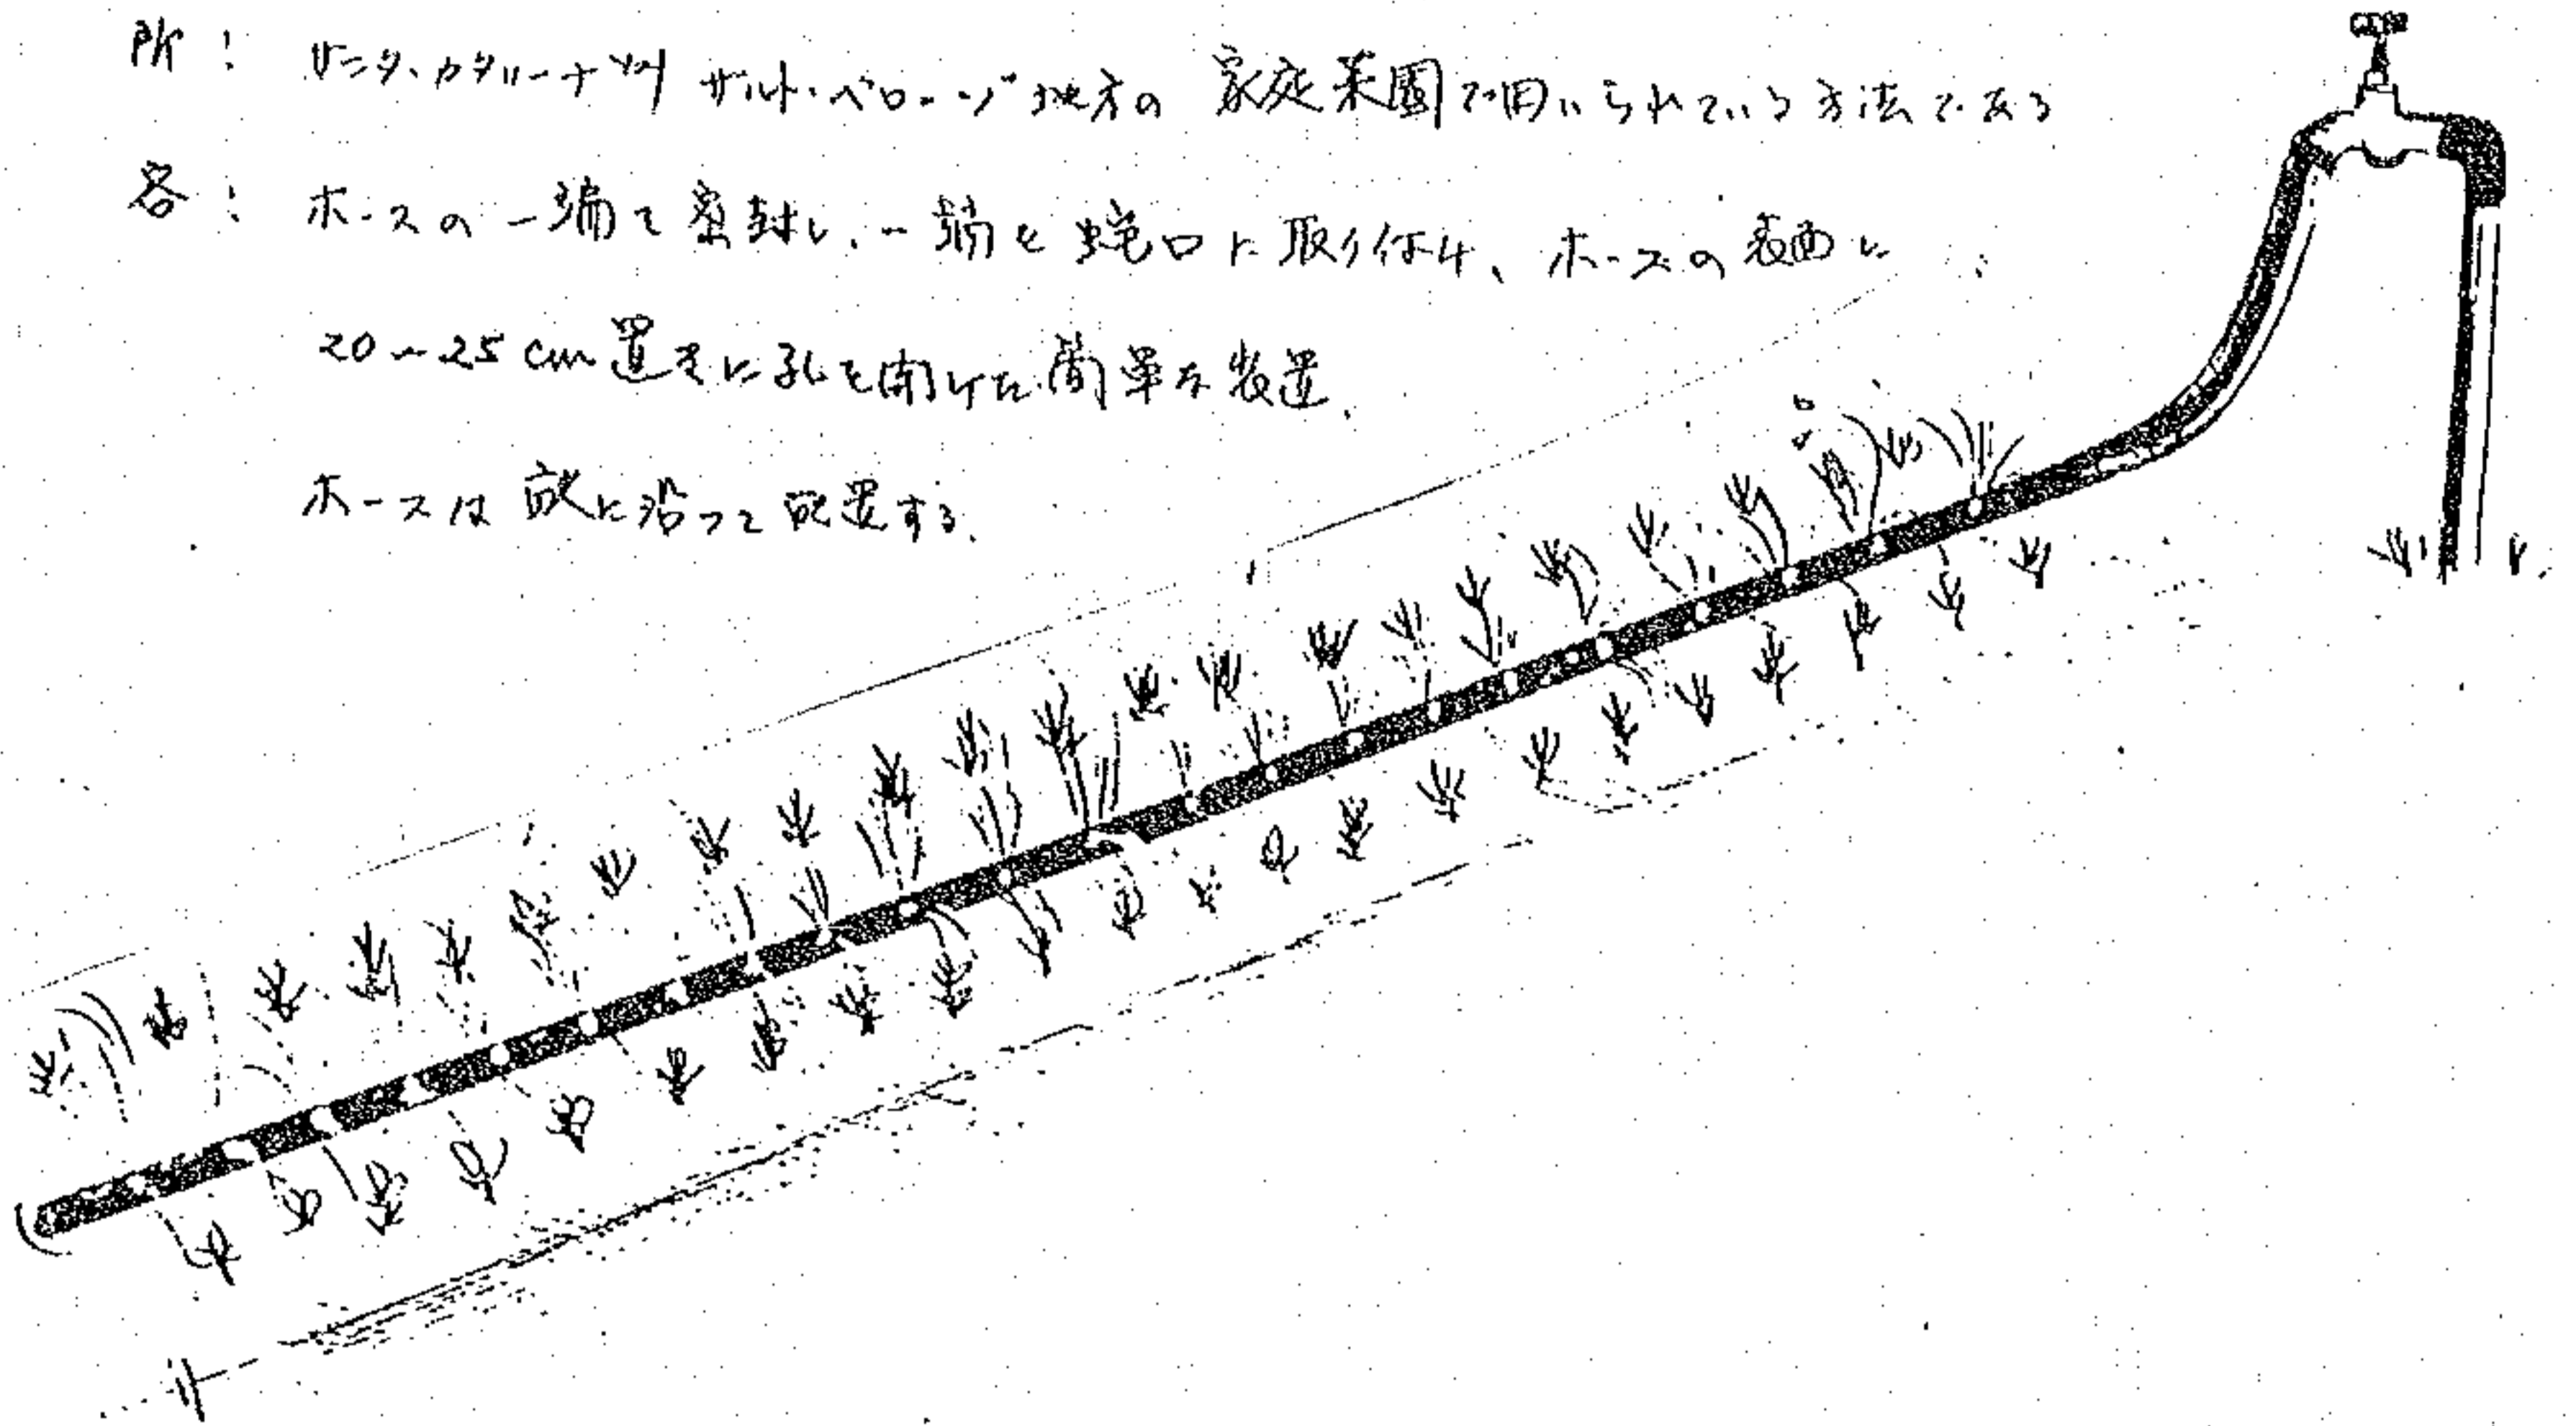 所: サンタ・カタリーナ州 サルト・ベローゾ地方の 家庭菜園で用いられている方法である
容: ホースの一端を密封し、一端を蛇口に取り付け、ホースの表面に
20~25cm置きに孔を開けた簡単な装置。
ホースは畝に沿って配置する。